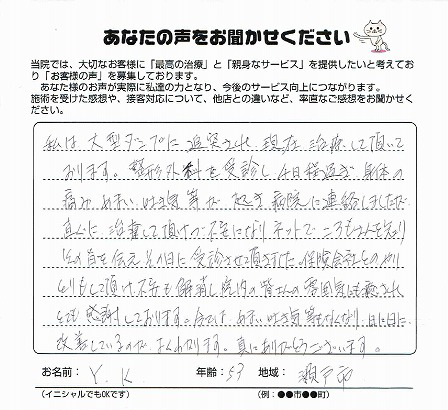 あなたの声をお聞かせください
当院では、大切なお客様に「最高の治療」と「親身なサービス」を提供したいと考えてお
り「お客様の声」を募集しております。
あなた様のお声が実際に私達の力となり、今後のサービス向上につながります。
施術を受けた感想や、接客対応について、他店との違いなど、率直なご感想をお聞かせく
ださい。
私は大型ダンプに追突され現在治療して頂いて
おります。整形外科を受診し4日程過ぎ身体の
痛み、めまい、吐き気等が起き病院に連絡しましたが
直ぐに治療して頂けず不安になりネットでころもさんを知り
その旨を伝えその日に受診させて頂きました。保険会社とのやり
とりもして頂け不安も解消し院内の皆さんの雰囲気にも癒され
とても感謝しております。今では、めまい吐き気等もなくなり日に日に
改善しているのがよくわかります。真にありがとうございます。
お名前: Y.K 年齢: 53 地域: 瀬戸市
(イニシャルでもOKです) (例:●●市●●町)